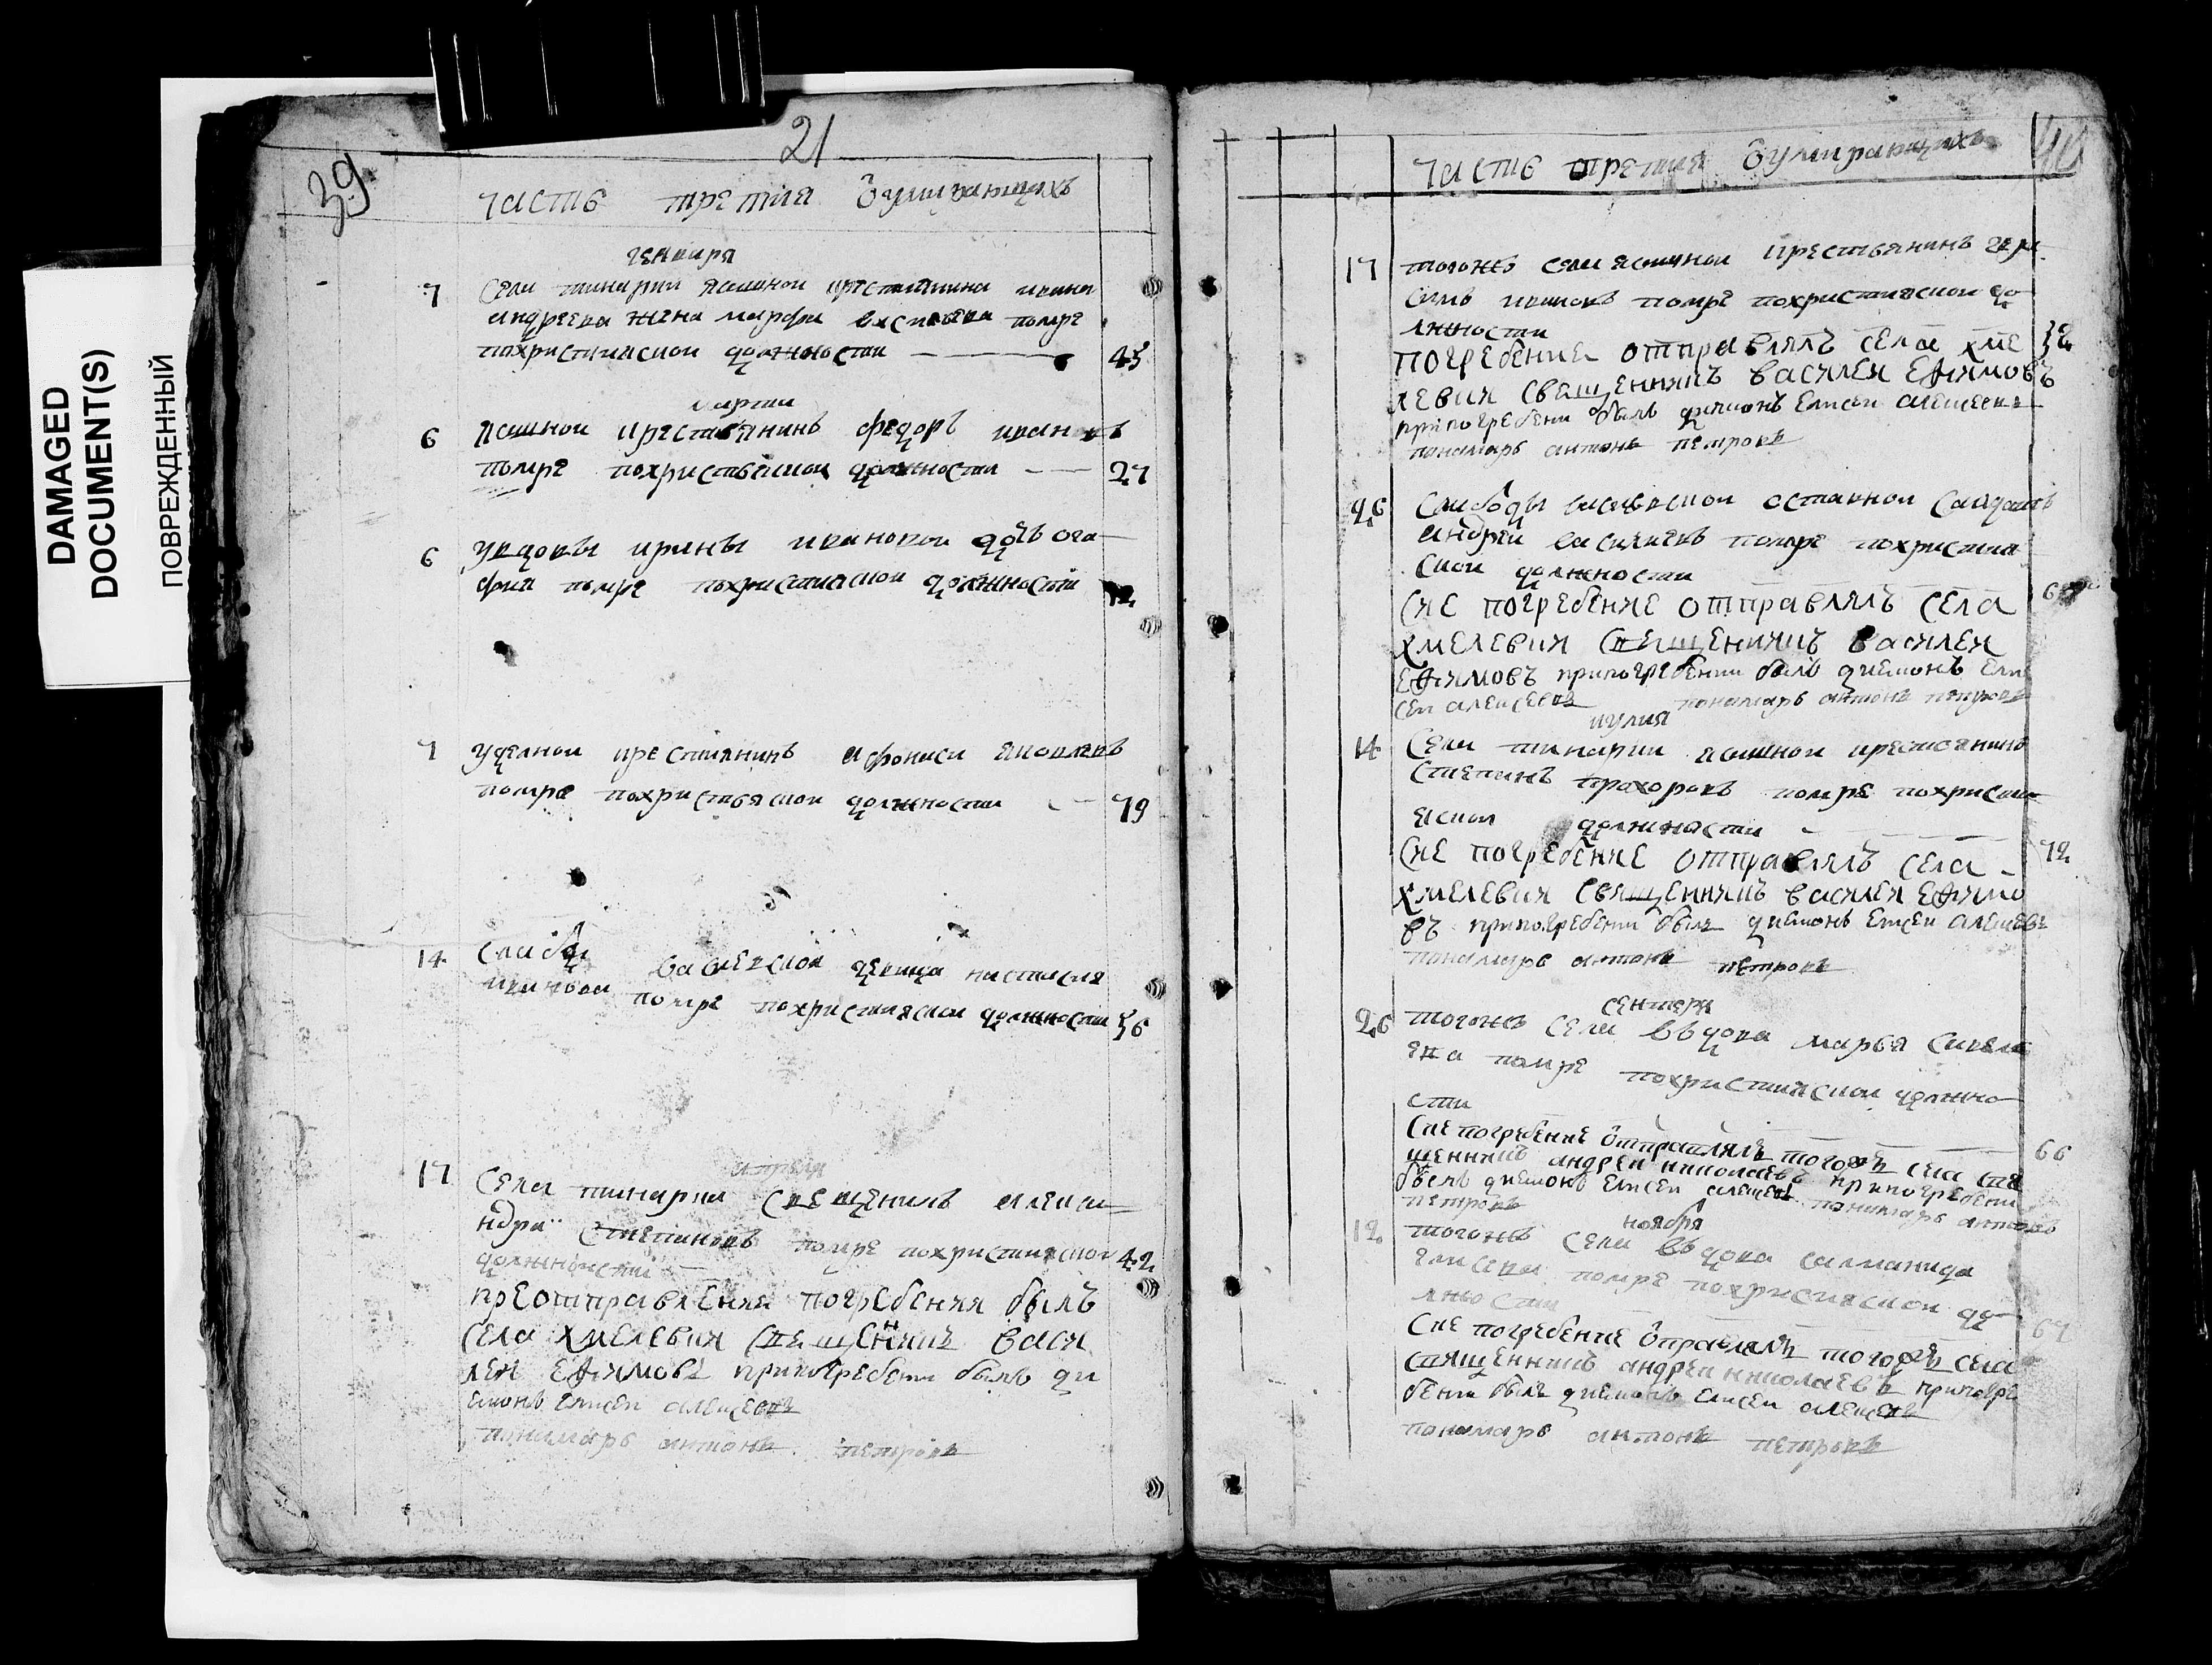 DAMAGED
DOCUMENT(S)
ПОВРЕЖДЕННЫЙ
39
21
часть третия ѿумирающихъ
генваря
7 Села ясашной крестьянина ивана
андреева жена марфа помре
похристианской должности 45
марта
6 ясашной крестьянинъ федоръ ивановъ
помре похристьянской должности 27
6 удовы ирины ивановой дочь ога
фия помре похристианской должности
7 уделной крестиянинъ афонаси яковлевъ
помре похристьянской должности 79
14 Слабоды васильевской девица настасия
иванова помре похристианской должности 36
апреля
17 Села священикъ алекса
ндра степановъ помре похристианской 42
должности
преотправлении погребения былъ
села хмелевки священникъ васи
леи ефимовъ припогребени былъ ди
яконъ елисеи алексеевъ
панамарь антонъ петровъ
40
часть третия ѿумирающихъ
17 тогожъ села ясашной крестьянинъ гера
симъ ивановъ помре похристианской до
лжности
погребение отправлялъ села хме 32
левки священникъ василеи ефимовъ
припогребени былъ дияконъ елисеи алексеевъ
панамарь антонъ петровъ
26 Слабоды васильевской оставной салдатъ
андреи василиевъ помре похристиа
ской должности
Сие погребение отправлялъ села
хмелевки священникъ василеи
ефимовъ припогребении былъ дияконъ ели
сеи алексеевъ панамарь антонъ петровъ
иулия
14 Села ясашной крестьянинъ
степанъ прохоровъ помре похристи
яской должности
Сие погребение отправлялъ села 72
хмелевки священникъ василеи ефимо
въ припогребени былъ дияконъ елисеи алексеевъ
панамарь антонъ петровъ
сентября
26 тогожъ села въдова марья савель
ева помре похристиянской должно
сти
Сие погребение ѿправлялъ тогожъ села свя 66
щенникъ андреи николаевъ припогребени
былъ дияконъ елисеи алексеевъ панамарь антонъ
петровъ
ноября
12 тогожъ села въдова саламанида
елисеева помре похристиянской до
лжности
Сие погребение ѿправлялъ тогожъ села 67
священникъ андреи николаевъ припогре
бени былъ дияконъ елисеи алексеевъ
панамарь антонъ петровъ